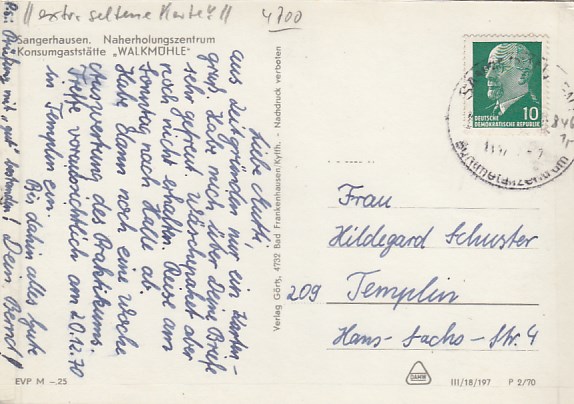 !! extra seltene Karte !!
4700
Sangerhausen. Naherholungszentrum
Konsumgaststätte „WALKMÜHLE"
Liebe Mutti,
aus Zeitgründen nur ein Karten-
gruß. Habe mich über Deine Briefe
sehr gefreut. Wäschepaket aber
noch nicht erhalten. Reise am
Sonntag nach Halle ab.
Habe dann noch eine Woche
Auswertung des Praktikums.
Treffe voraussichtlich am 20.12.70
in Templin ein.
Bis dahin alles Gute
Dein Bernd!
Prüfung mit „gut" bestanden!
Verlag Görtz, 4732 Bad Frankenhausen/Kyffh. - Nachdruck verboten
10
DEUTSCHE
DEMOKRATISCHE REPUBLIK
Frau
Hildegard Schuster
209 Templin
Hans-Sachs-Str. 4
EVP M -.25
DAHW
III/18/197 P 2/70